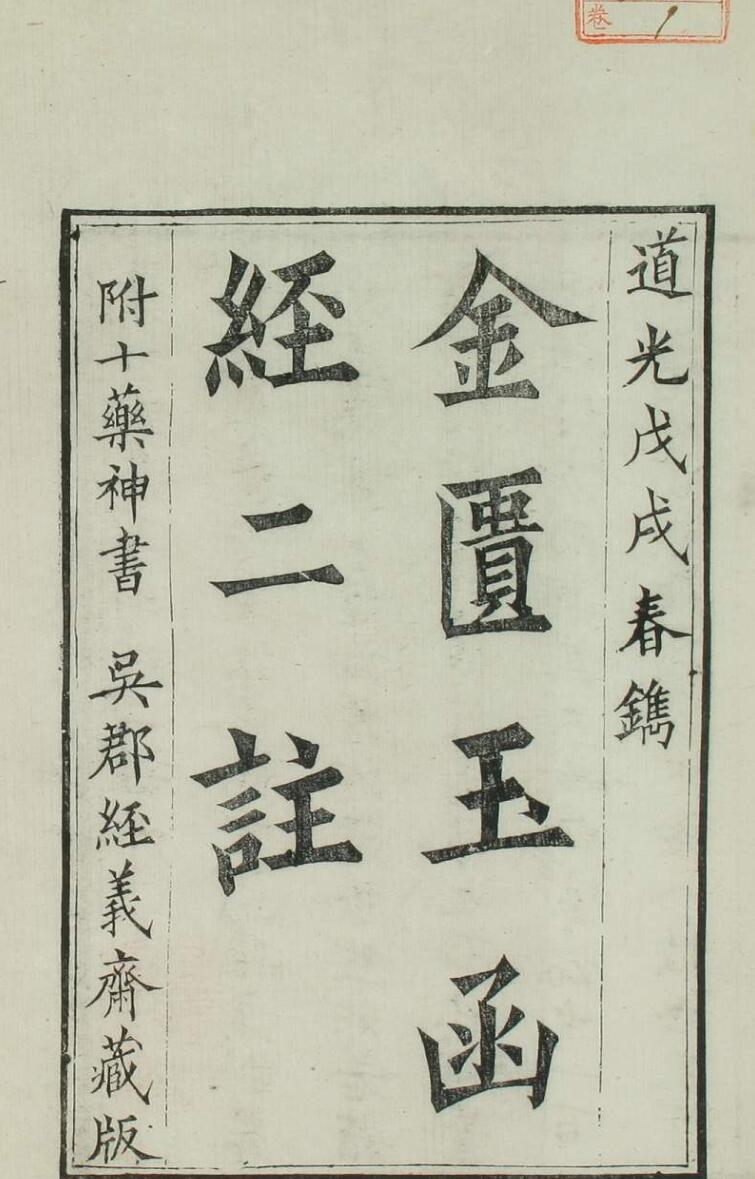 道光戊戌春鐫
金匱玉函
經二註
附十藥神書 吳郡經義齋藏版
卷 1